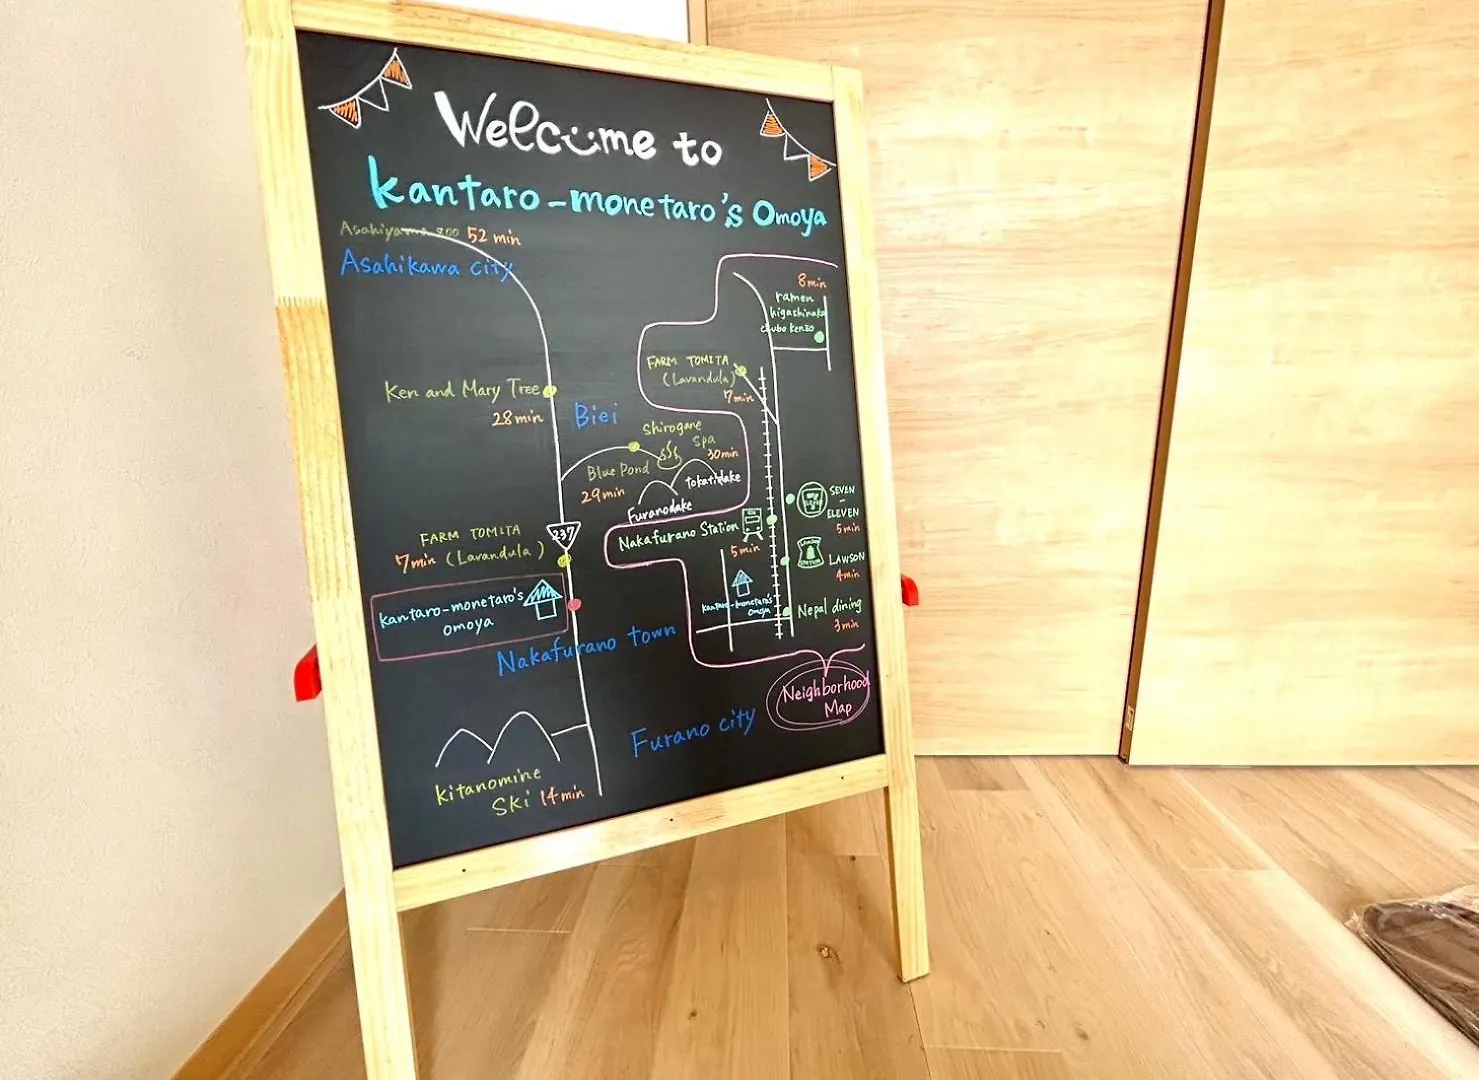 Welcome to
kantaro-monetaro's Omoya
Asahiyama zoo 52 min
Asahikawa city
Ken and Mary Tree
28min
Biei
Shirogane
spa
30min
Blue Pond
29min
Tokatidake
Furanodake
237
FARM TOMITA
7min (Lavandula)
kantaro-monetaro's
omoya
Nakafurano town
Furano city
kitanomine
SKi 14min
8min
ramen
higashinaka
chubo KenZo
FARM TOMITA
(Lavandula)
7min
SEVEN
-
ELEVEN
5min
Nakafurano Station
5min
STATION
LAWSON
4min
kantaro-monetaro's
omoya
Nepal dining
3min
Neighborhood
Map